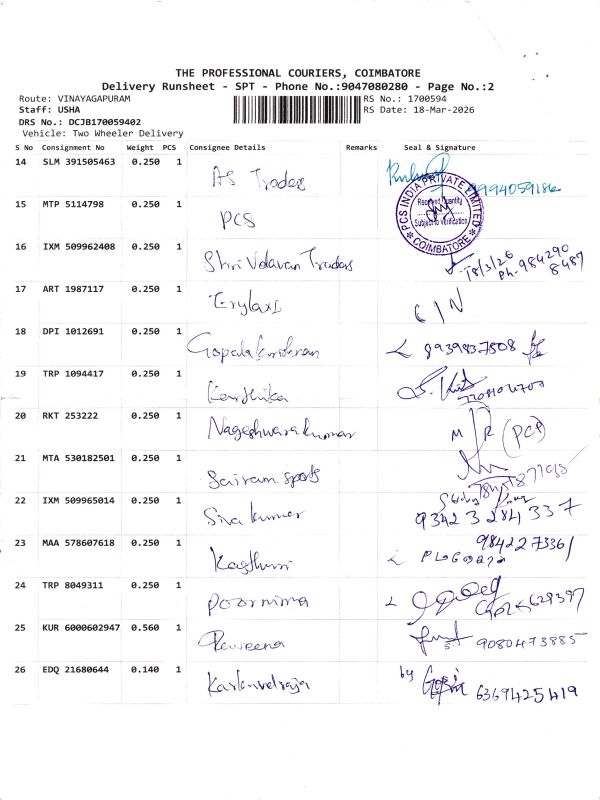 THE PROFESSIONAL COURIERS, COIMBATORE
Delivery Runsheet - SPT - Phone No.:9047080280 - Page No.:2
Route: VINAYAGAPURAM
RS No.: 1700594
Staff: USHA
RS Date: 18-Mar-2026
DRS No.: DCJB170059402
Vehicle: Two Wheeler Delivery
S No Consignment No Weight PCS Consignee Details Remarks Seal & Signature
14 SLM 391505463 0.250 1 AS Traders 9994059186
PCS INDIA PRIVATE LIMITED
Received Quantity
Subject to Verification
COIMBATORE
15 MTP 5114798 0.250 1 PCS
16 IXM 509962408 0.250 1 Shri Velavan Traders 18/3/26
Ph- 984290
8487
17 ART 1987117 0.250 1
18 DPI 1012691 0.250 1 Gopalakrishnan 8939837508
19 TRP 1094417 0.250 1 Karthika
20 RKT 253222 0.250 1 Nageshwara kumar
21 MTA 530182501 0.250 1 Sairam sports
22 IXM 509965014 0.250 1 Siva kumar 93423284337
23 MAA 578607618 0.250 1 9842273361
24 TRP 8049311 0.250 1 Poornima
25 KUR 6000602947 0.560 1 Praveena 9080473885
26 EDQ 21680644 0.140 1 by Gopi 6369425419